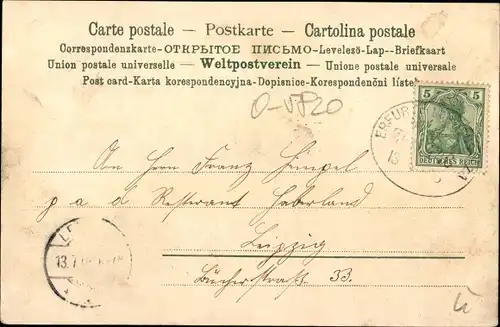 Carte postale — Postkarte — Cartolina postale
Correspondenzkarte-ОТКРЫТОЕ ПИСЬМО-Levelező-Lap--Briefkaart
Union postale universelle — Weltpostverein — Unione postale universale
Post card-Karta korespondencyjna-Dopisnice-Korespondenčni listek
O-VP20
5 5
DEUTSCHES REICH
ERFUR
13
An Herrn Franz Hempel
p a d Resterant Haberland
Leipzig
Bücherstraß 33.
13.7